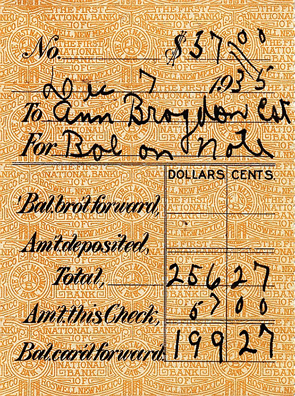 No. $37.00
Dec 7 1935
To Ann Brogdon Est
For Bal on Note
DOLLARS CENTS
Bal. bro't forward,
Am't deposited,
Total, 256 27
Am't this Check, 57 00
Bal. car'd forward, 199 27